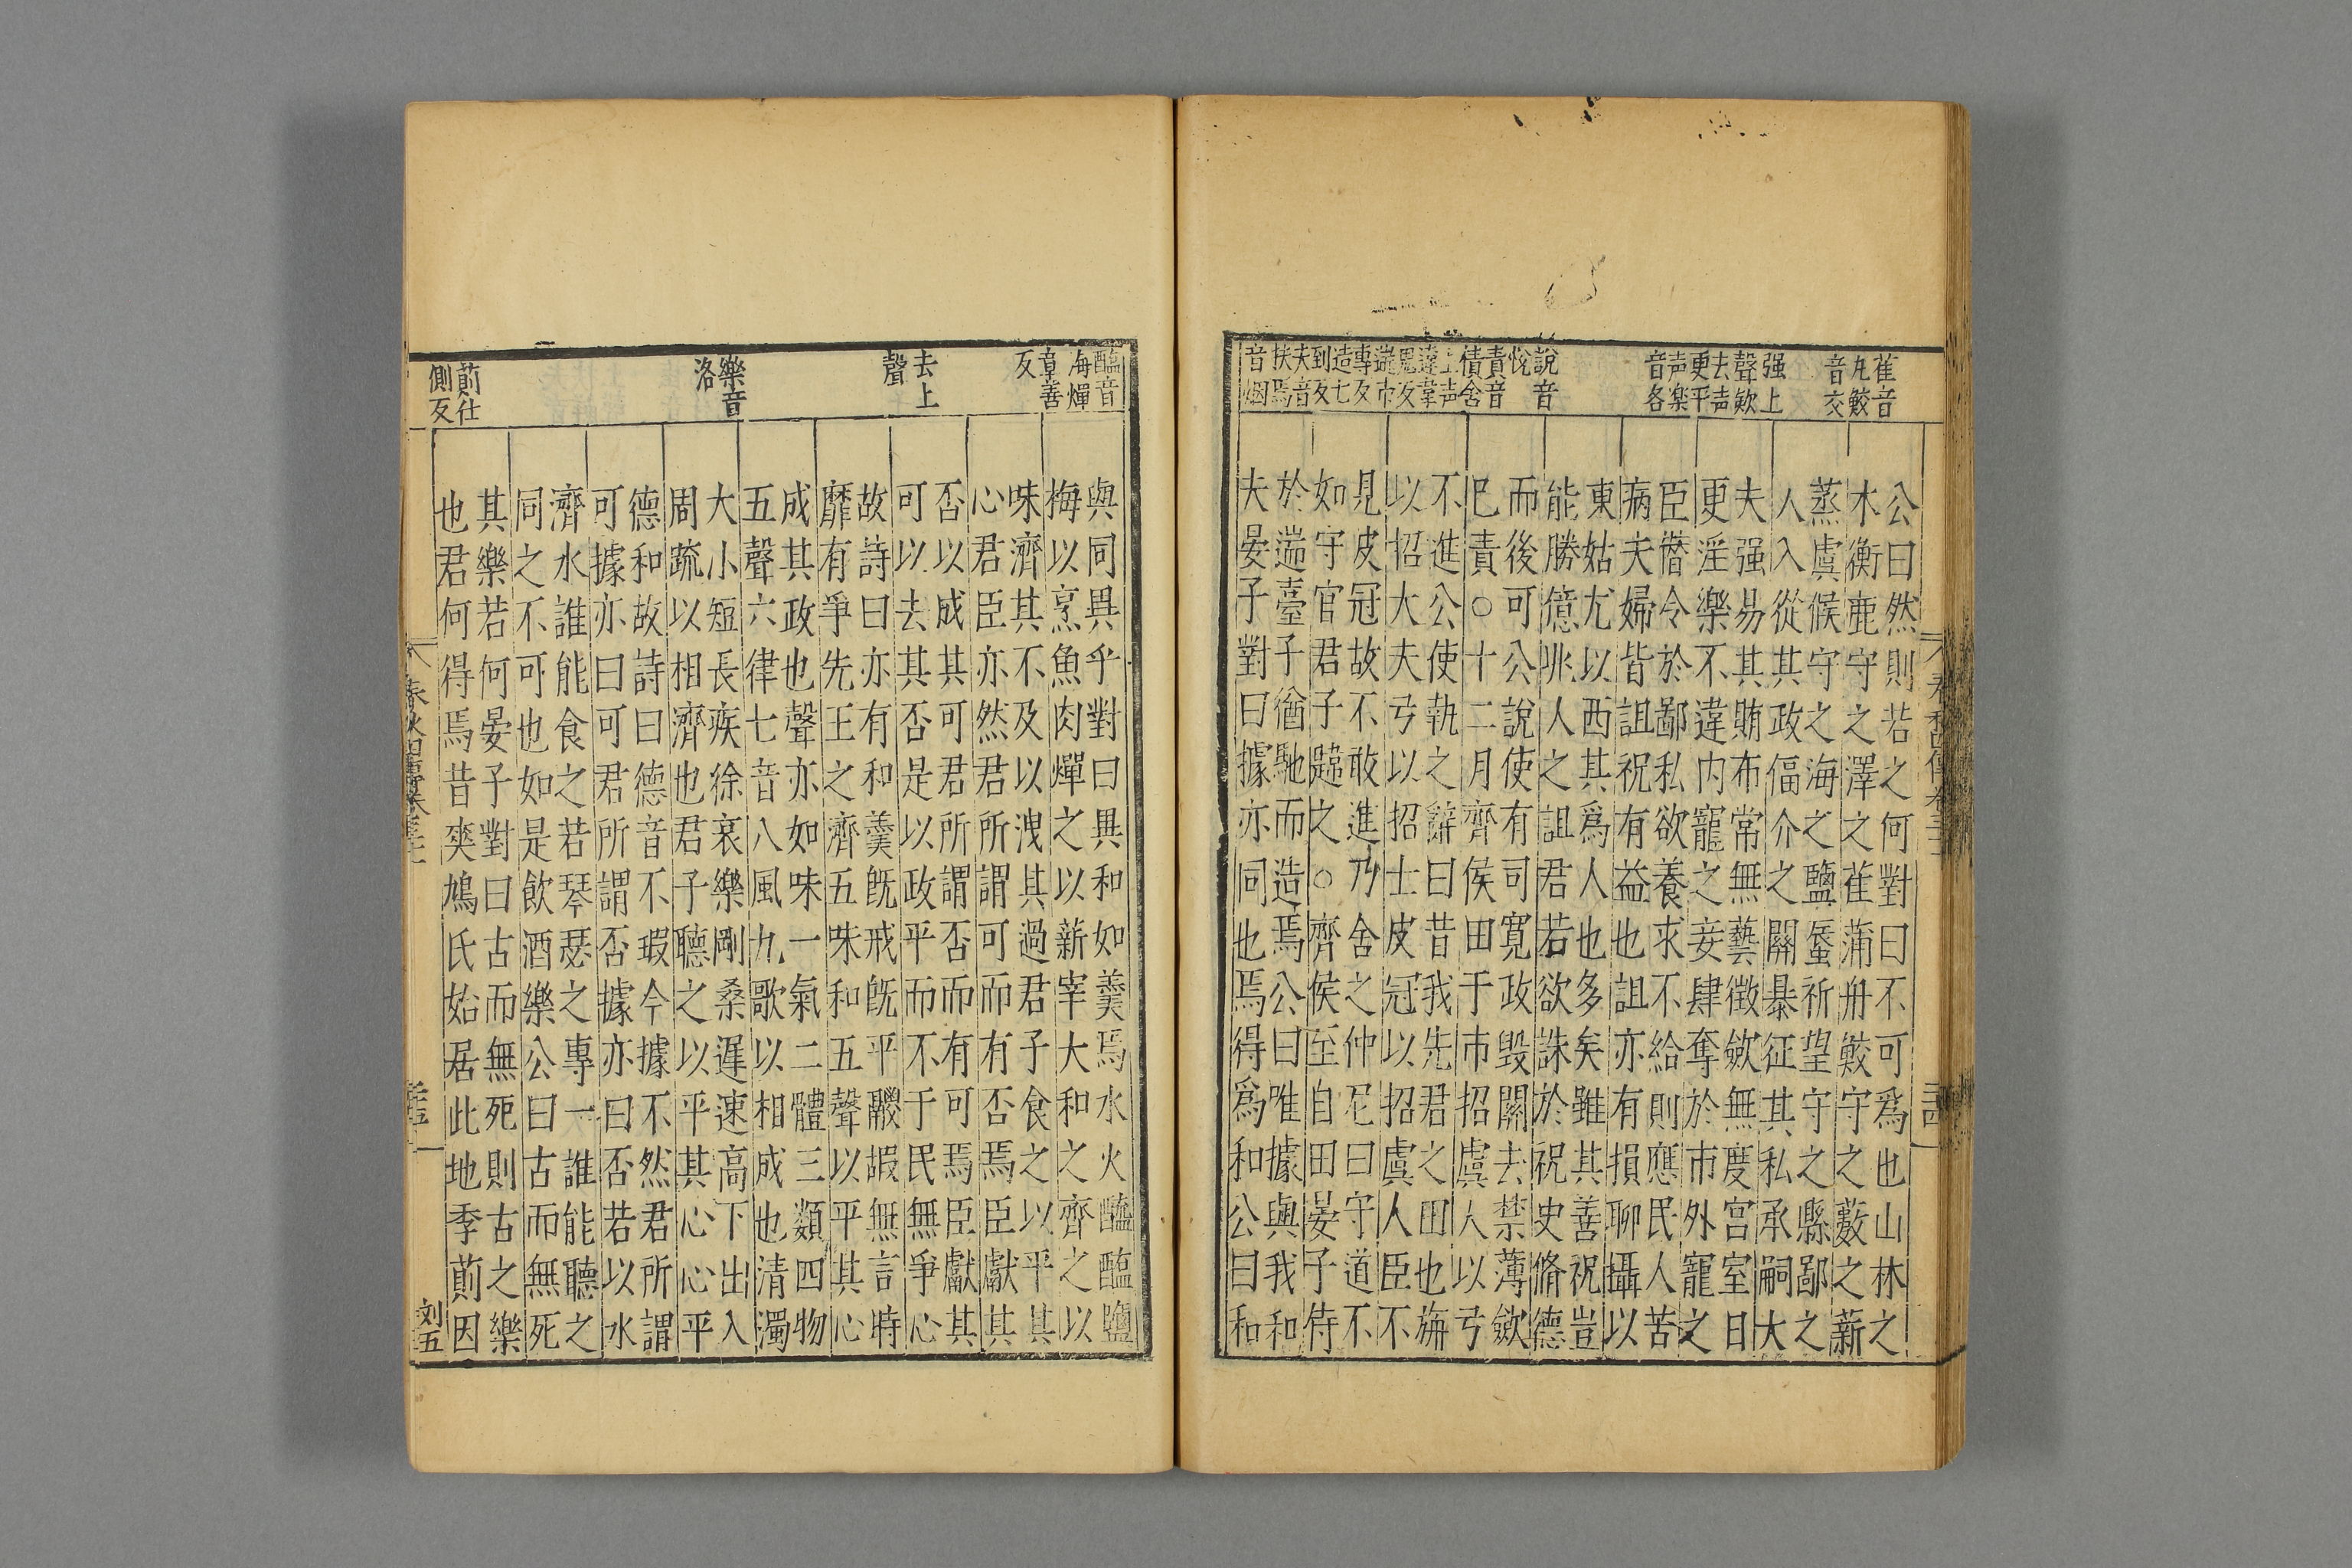 萑音
丸鮫
音交
强上
聲歛
去声
更平
声楽
音各
說音
悅
責音
債舍
上声
違韋
思反
遄市
專反
造七
到反
夫音
扶焉
音烟
公曰然則若之何對曰不可爲也山林之
木衡鹿守之澤之萑蒲舟鮫守之藪之薪
蒸虞候守之海之鹽蜃祈望守之縣鄙之
人入從其政偪介之關暴征其私承嗣大
夫强易其賄布常無藝徵斂無度宮室日
更淫樂不違內寵之妾肆奪於市外寵之
臣僭令於鄙私欲養求不給則應民人苦
病夫婦皆詛祝有益也詛亦有損聊攝以
東姑尤以西其爲人也多矣雖其善祝豈
能勝億兆人之詛君若欲誅於祝史脩德
而後可公說使有司寬政毀關去禁薄斂
已責○十二月齊侯田于市招虞人以弓
不進公使執之辭曰昔我先君之田也旃
以招大夫弓以招士皮冠以招虞人臣不
見皮冠故不敢進乃舍之仲尼曰守道不
如守官君子韙之○齊侯至自田晏子侍
於遄臺子猶馳而造焉公曰唯據與我和
夫晏子對曰據亦同也焉得爲和公曰和
醯音
海燀
章善
反
去上
聲
樂音
洛
萴仕
側反
與同異乎對曰異和如羹焉水火醯醢鹽
梅以烹魚肉燀之以薪宰夫和之齊之以
味濟其不及以洩其過君子食之以平其
心君臣亦然君所謂可而有否焉臣獻其
否以成其可君所謂否而有可焉臣獻其
可以去其否是以政平而不于民無爭心
故詩曰亦有和羹旣戒旣平鬷嘏無言時
靡有爭先王之濟五味和五聲以平其心
成其政也聲亦如味一氣二體三類四物
五聲六律七音八風九歌以相成也清濁
大小短長疾徐哀樂剛柔遲速高下出入
周疏以相濟也君子聽之以平其心心平
德和故詩曰德音不瑕今據不然君所謂
可據亦曰可君所謂否據亦曰否若以水
濟水誰能食之若琴瑟之專一誰能聽之
同之不可也如是飮酒樂公曰古而無死
其樂若何晏子對曰古而無死則古之樂
也君何得焉昔爽鳩氏始居此地季萴因
刘五